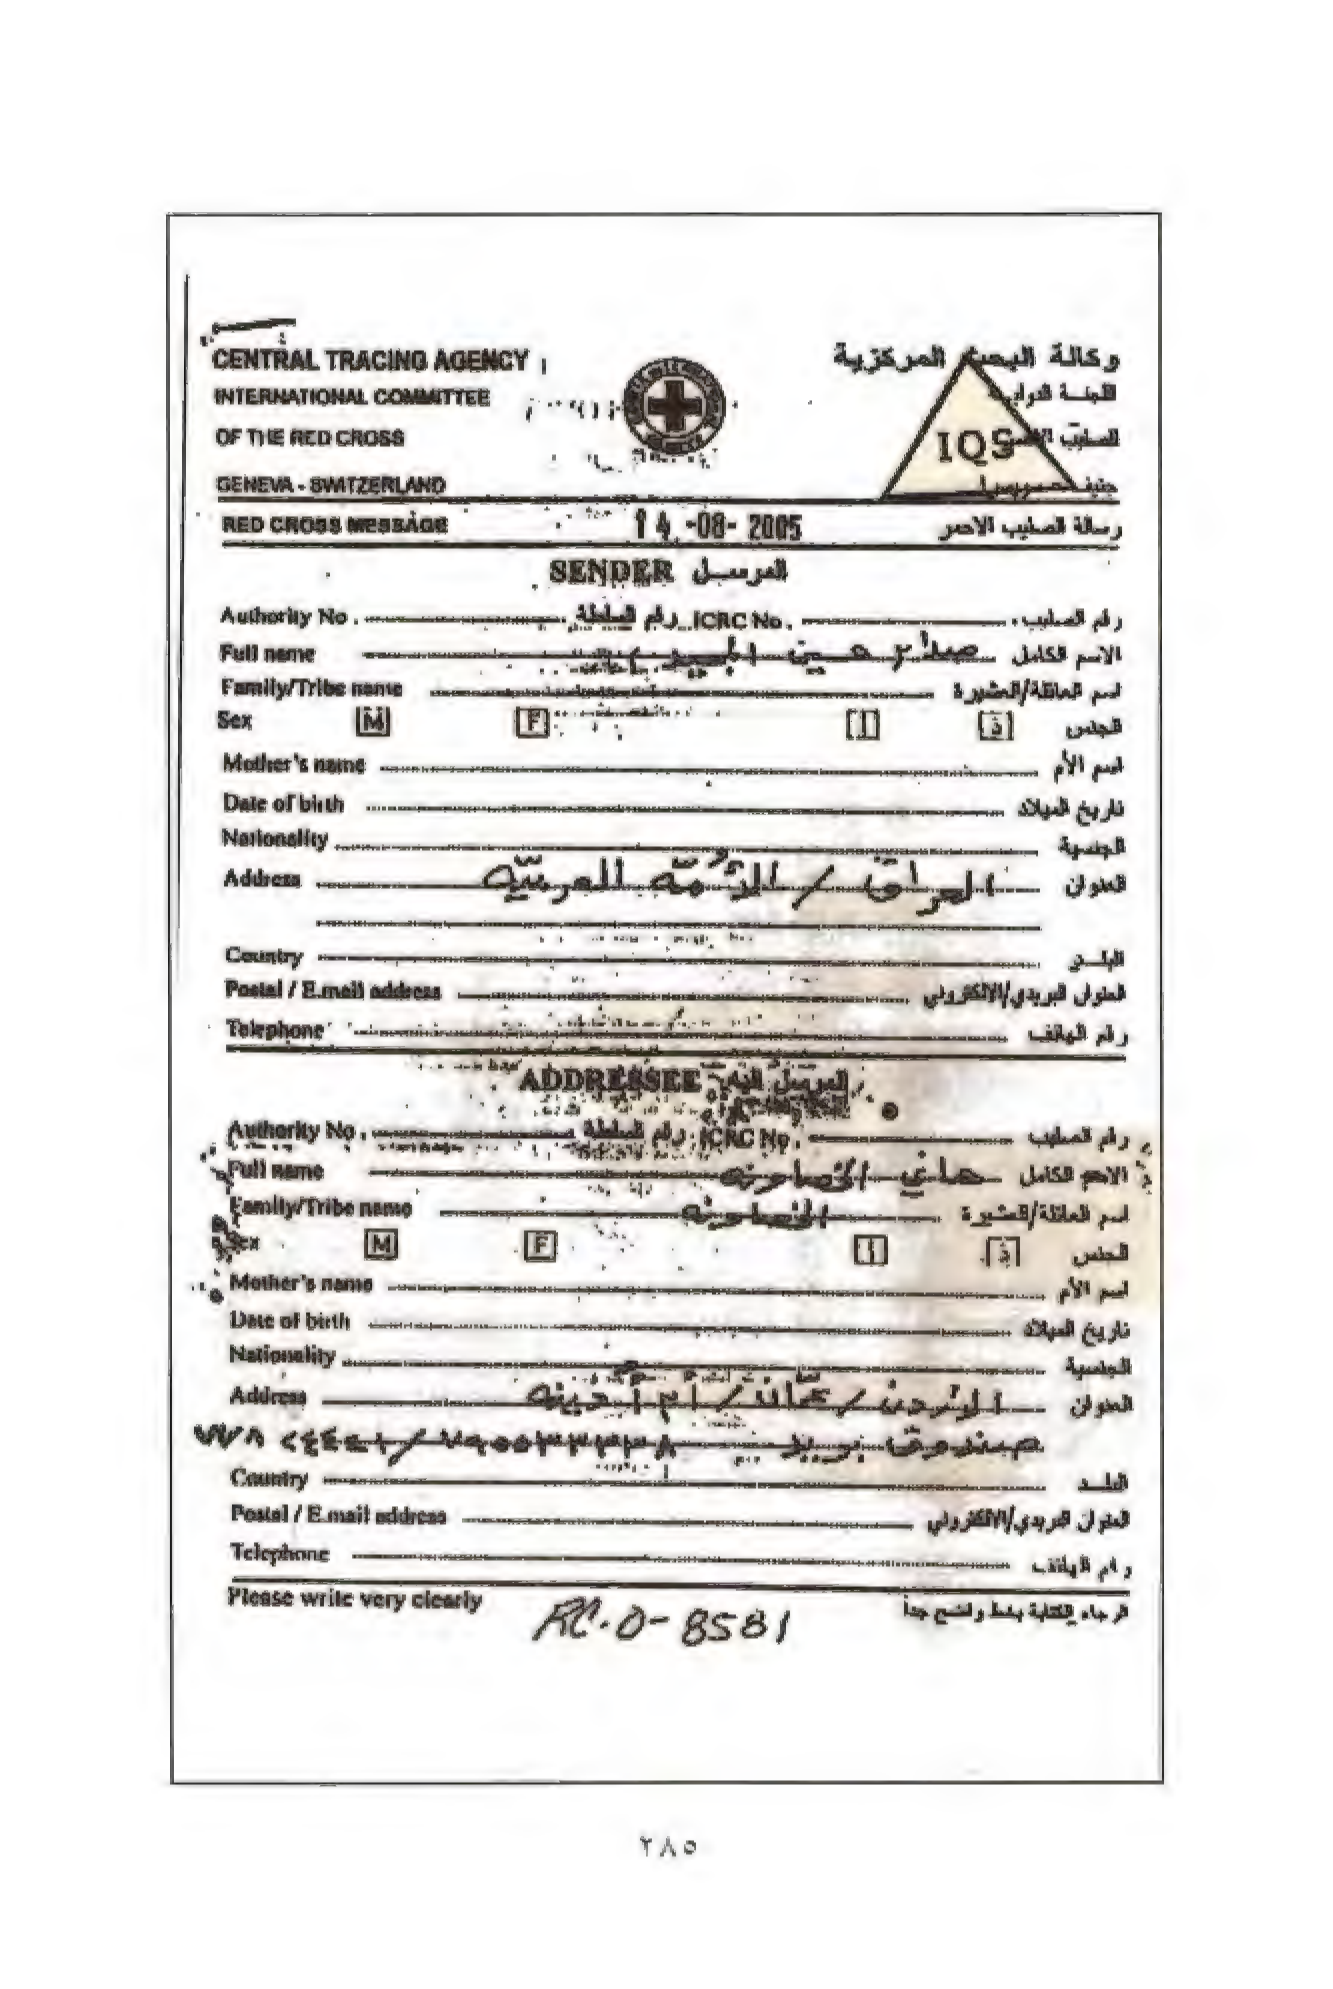 CENTRAL TRACING AGENCY وكالة البحث المركزية
INTERNATIONAL COMMITTEE اللجنة
OF THE RED CROSS الصليب
IQS
GENEVA - SWITZERLAND
RED CROSS MESSAGE 14.-08-2005 رسالة الصليب الاحمر
SENDER المرسل
Authority No. رقم السلطة ICRC No. رقم الصليب
Full name صدام حسين الاسم الكامل
Family/Tribe name اسم العائلة/العشيرة
Sex M F أ ذ الجنس
Mother's name اسم الأم
Date of birth تاريخ الميلاد
Nationality الجنسية
Address العراق / الأمّة العربيّه العنوان
Country البلد
Postal / E.mail address العنوان البريدي/الالكتروني
Telephone رقم الهاتف
ADDRESSEE المرسل اليه
Authority No. رقم السلطة ICRC No. رقم الصليب
Full name هاني الخصاونه الاسم الكامل
Family/Tribe name الخصاونه اسم العائلة/العشيرة
Sex M F أ ذ الجنس
Mother's name اسم الأم
Date of birth تاريخ الميلاد
Nationality الجنسية
Address الأردن / عمّان / ام أذينه العنوان
صندوق بريد
Country البلد
Postal / E.mail address العنوان البريدي/الالكتروني
Telephone رقم الهاتف
Please write very clearly الرجاء الكتابة بخط واضح جداً
RC.0-8581
٢٨٥